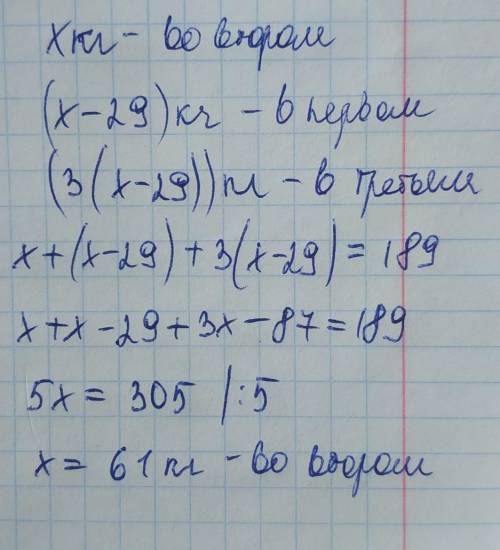 x кг - во втором
(x-29) кг - в первом
(3(x-29)) кг - в третьем
x+(x-29)+3(x-29)=189
x+x-29+3x-87=189
5x=305 |:5
x=61 кг - во втором